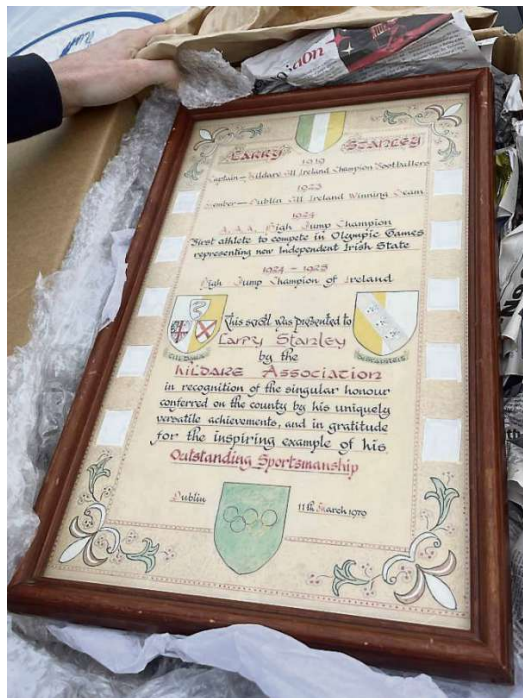 Larry Stanley
1919
Captain – Kildare All Ireland Champion Footballers
1923
Member – Dublin All Ireland Winning Team
1924
A.A.A. High Jump Champion
First athlete to compete in Olympic Games
representing new Independent Irish State
1924 – 1925
High Jump Champion of Ireland
This scroll was presented to
Larry Stanley
by the
Kildare Association
in recognition of the singular honour
conferred on the county by his uniquely
versatile achievements, and in gratitude
for the inspiring example of his
Outstanding Sportsmanship
Dublin
11th March 1970